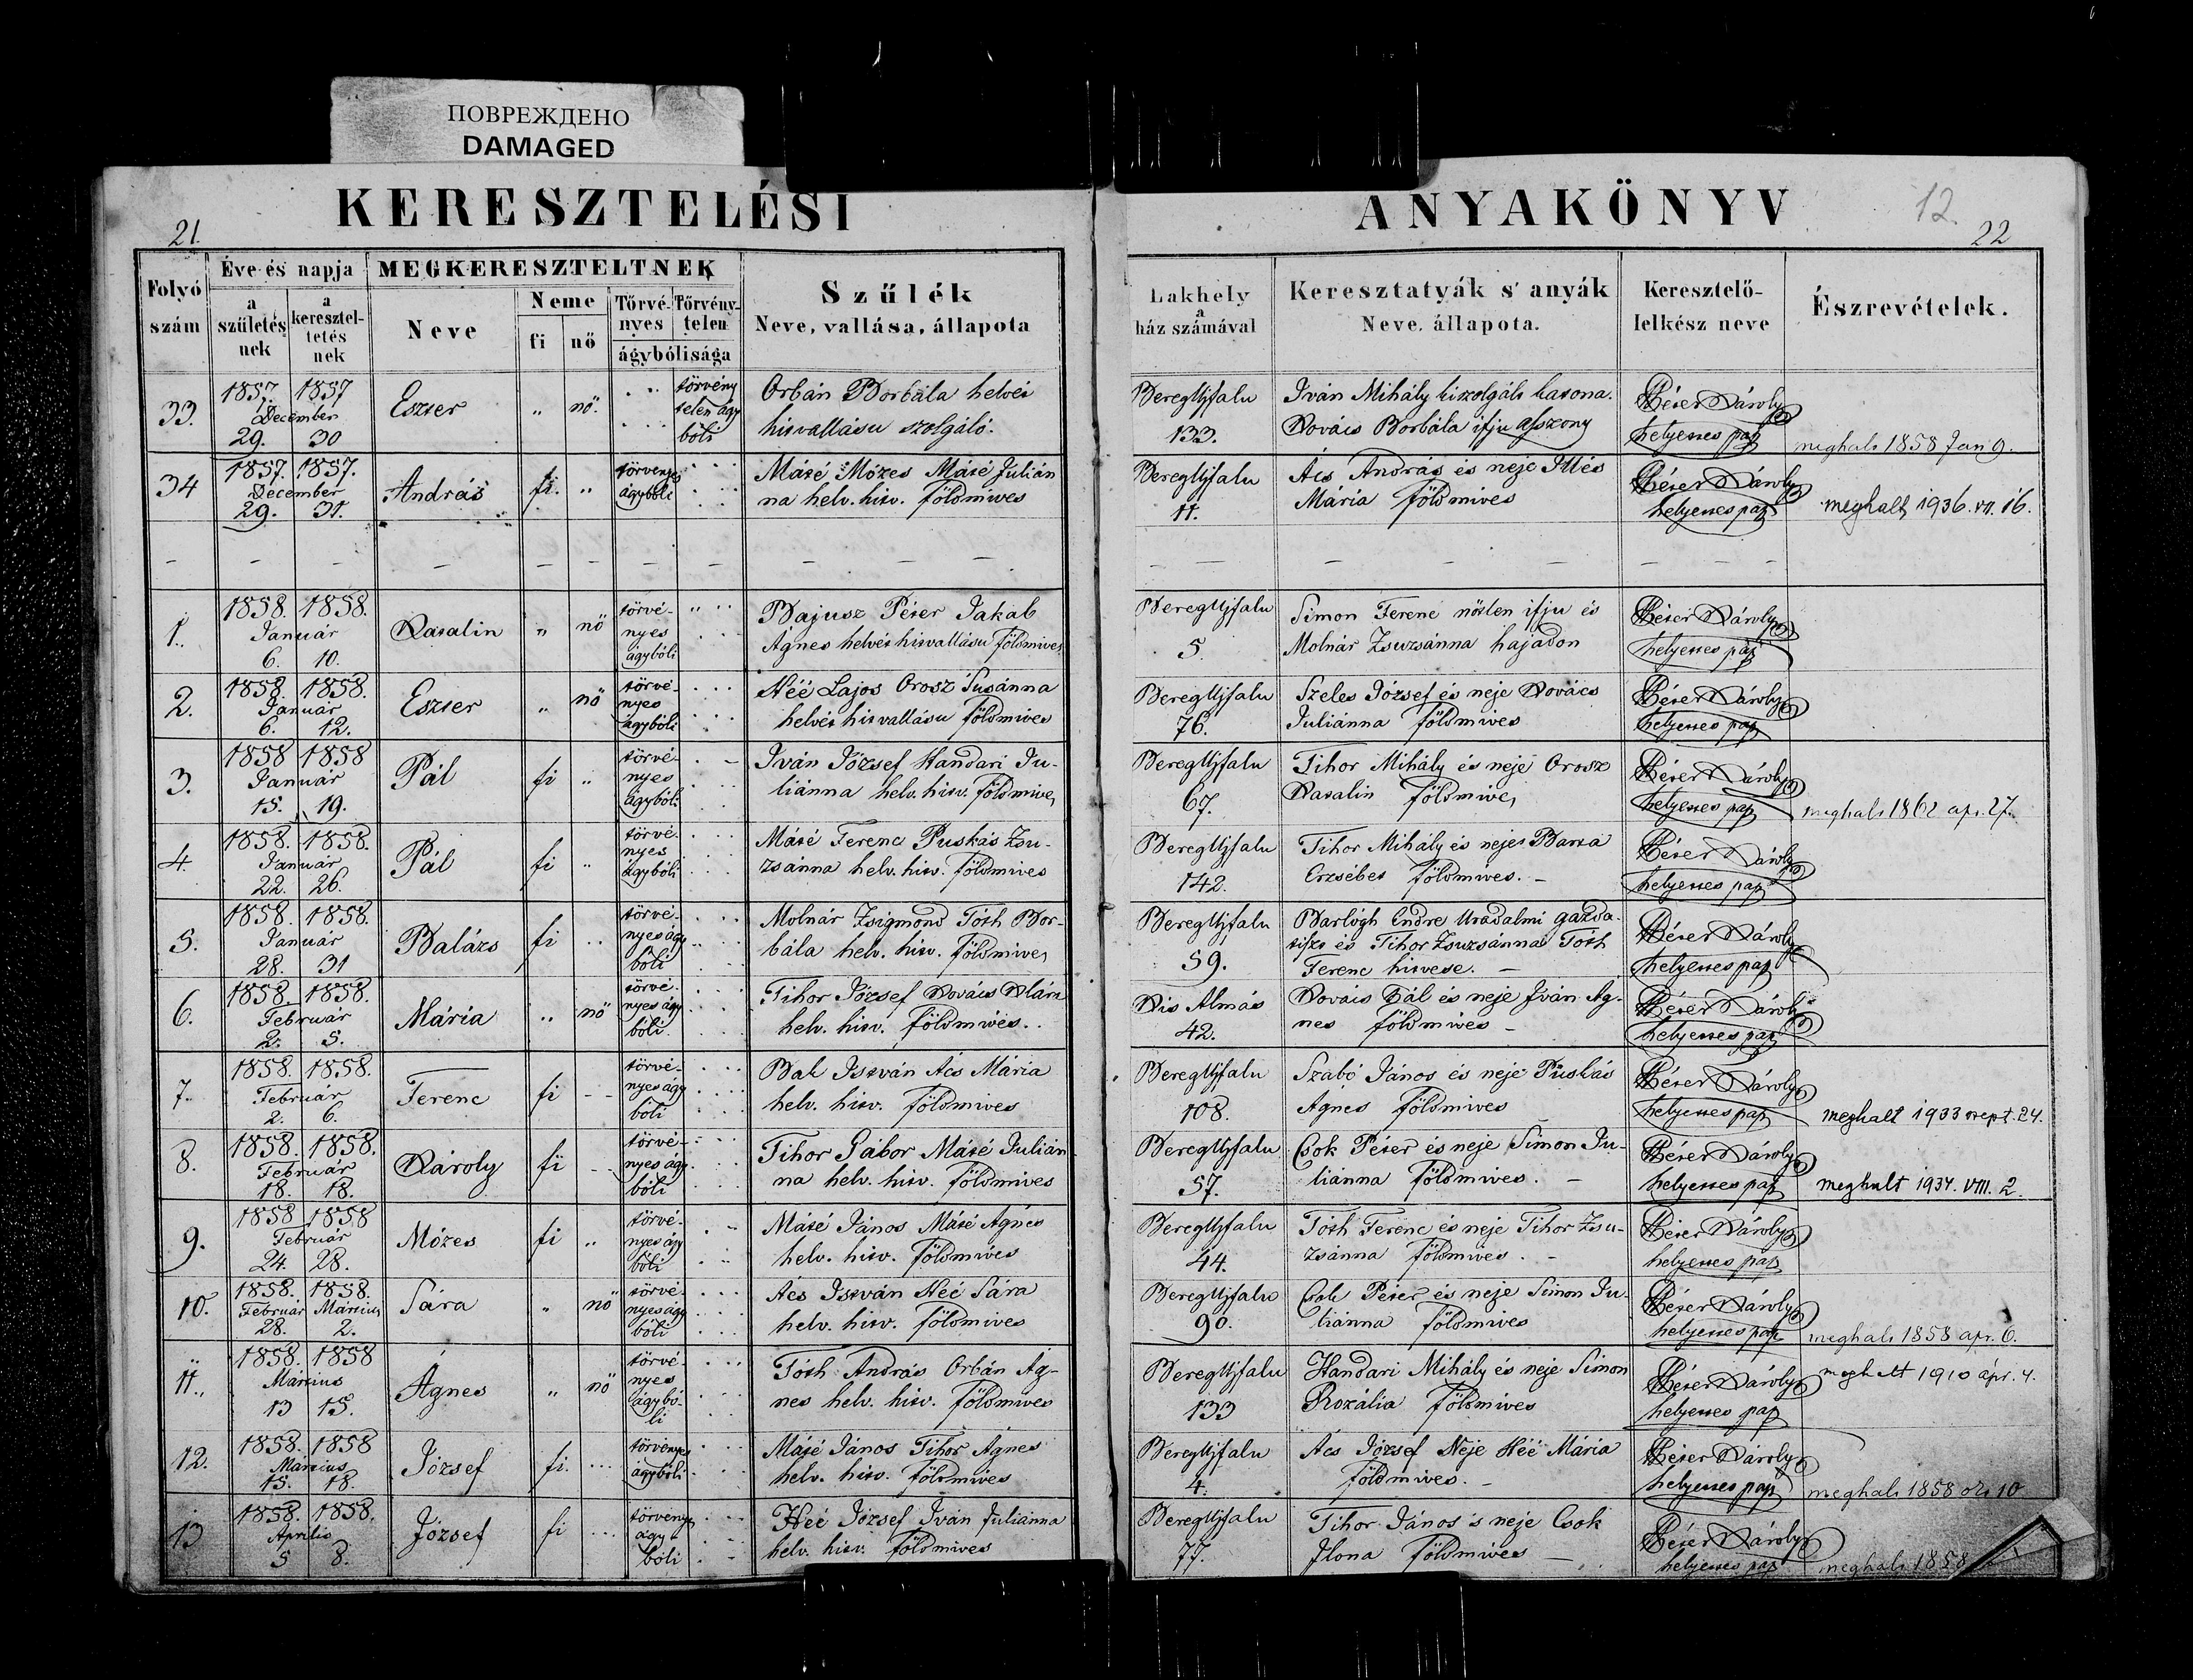 ПОВРЕЖДЕНО
DAMAGED
KERESZTELÉSI
ANYAKÖNYV
21.
12.
22
Folyó szám
Éve és napja
a születés nek
a keresztel- tetés nek
MEGKERESZTELTNEK
Neve
Neme
fi
nő
Törvé- nyes
Törvény- telen
ágybólisága
Szűlék
Neve, vallása, állapota
Lakhely
a
ház számával
Keresztatyák s' anyák
Neve. állapota.
Keresztelő-
lelkész neve
Észrevételek.
33. 1857. 1857 December 29. 30 Eszter „ nő. törvény telen ágy bóli Orbán Borbála helvét hitvallásu szolgáló. BeregUjfalu 133. Iván Mihály kiszolgált katona. Kovács Borbála ifju asszony Péter Károly helyettes pap meghalt 1858 Jan 9.
34 1857. 1857. December 29. 31. András fi. „ törvényes ágybóli Máté Mózes Máté Julián na helv. hitv. földmives BeregUjfalu 11. Ács András és neje Illés Mária földmives Péter Károly helyettes pap meghalt 1936. VII. 16.
1. 1858. 1858. Január 6. 10. Katalin „ nő törvé- nyes ágybóli Bajusz Péter Jakab Ágnes helvét hitvallásu földmives BeregUjfalu 5. Simon Ferenc nőtlen ifju és Molnár Zsuzsánna hajadon Péter Károly helyettes pap
2. 1858. 1858. Január 6. 12. Eszter „ nő törvé- nyes ágybóli Héé Lajos Orosz Susánna helvét hitvallásu földmives BeregUjfalu 76. Szeles József és neje Kovács Juliánna földmives Péter Károly helyettes pap
3. 1858 1858 Január 15. 19. Pál fi „ törvé- nyes ágybóli Iván József Handari Ju- liánna helv. hitv. földmives BeregUjfalu 67. Tihor Mihály és neje Orosz Katalin földmives Péter Károly helyettes pap meghalt 1862 apr. 27.
4. 1858. 1858. Január 22. 26. Pál fi „ törvé- nyes ágybóli Máté Ferenc Puskás Zsu- zsánna helv. hitv. földmives BeregUjfalu 142. Tihor Mihály és neje Erzsébet földmives. Péter Károly helyettes pap
5. 1858. 1858. Január 28. 31 Balázs fi törvé- nyes ágy bóli Molnár Zsigmond Tóth Bor- bála helv. hitv. földmives BeregUjfalu 59. Barlógh Endre Uradalmi gazda- tiszt és Tihor Zsuzsánna Tóth Ferenc hitvese. Péter Károly helyettes pap
6. 1858. 1858. Február 2. 5. Mária „ nő törvé- nyes ágy bóli Tihor József Kovács Klára helv. hitv. földmives. Kis Almás 42. Kovács Pál és neje Iván Ág- nes földmives Péter Károly helyettes pap
7. 1858. 1858. Február 2. 6. Ferenc fi törvé- nyes ágy bóli Bak István Ács Mária helv. hitv. földmives BeregUjfalu 108. Szabó János és neje Puskás Ágnes földmives Péter Károly helyettes pap meghalt 1933 szept. 24.
8. 1858. 1858. Február 18. 18. Károly fi törvé- nyes ágy bóli Tihor Gábor Máté Julián na helv. hitv. földmives BeregUjfalu 57. Csok Péter és neje Simon Ju- liánna földmives. Péter Károly helyettes pap meghalt 1934. VIII. 2.
9. 1858 1858 Február 24. 28. Mózes fi „ törvé- nyes ágy bóli Máté János Máté Ágnes helv. hitv. földmives BeregUjfalu 44. Tóth Ferenc és neje Tihor Zsu- zsánna földmives. Péter Károly helyettes pap
10. 1858. 1858. Február Március 28. 2. Sára „ nő törvé- nyes ágy bóli Ács István Héé Sára helv. hitv. földmives BeregUjfalu 90. Csok Péter és neje Simon Ju- liánna földmives Péter Károly helyettes pap meghalt 1858 apr. 6.
11. 1858. 1858 Március 13 15. Ágnes „ nő törvé- nyes ágybó- li Tóth András Orbán Ág- nes helv. hitv. földmives BeregUjfalu 133 Handari Mihály és neje Simon Rozália földmives Péter Károly helyettes pap meghalt 1910 ápr. 4.
12. 1858. 1858 Március 15. 18. József fi. törvényes ágybóli Máté János Tihor Ágnes helv. hitv. földmives BeregUjfalu 4. Ács József Neje Héé Mária földmives. Péter Károly helyettes pap meghalt 1858 10
13 1858. 1858. Aprilis 5 8. József fi törvényes ágy bóli Héé József Iván Juliánna helv. hitv. földmives BeregUjfalu 77. Tihor János s neje Csok Ilona földmives Péter Károly helyettes pap meghalt 1858